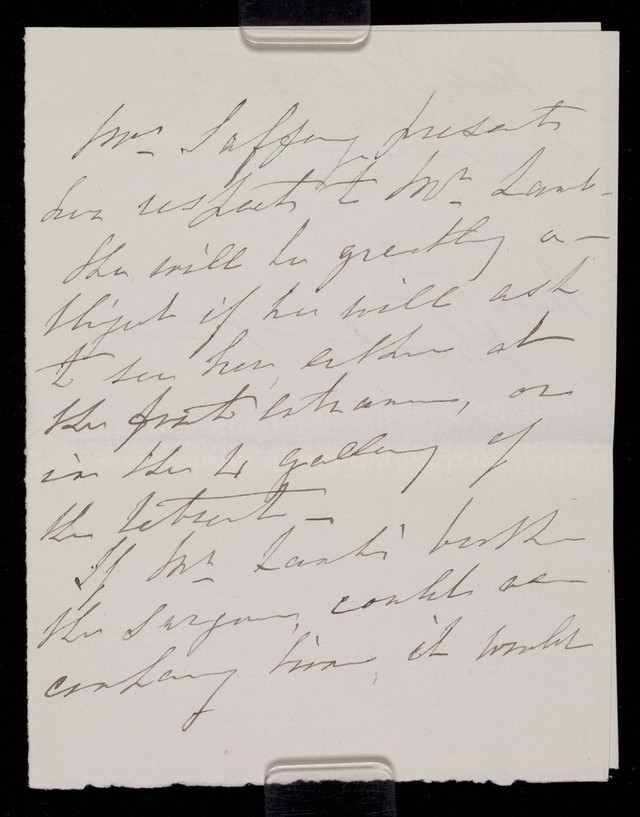 Mrs Saffery presents
her respects to Mr Lamb -
She will be greatly o-
bliged if he will ask
to see her, either at
the front entrance, or
in the 4 gallery of
the Retreat -
If Mr Lamb's brother
the Surgeon, could ac
company him, it would